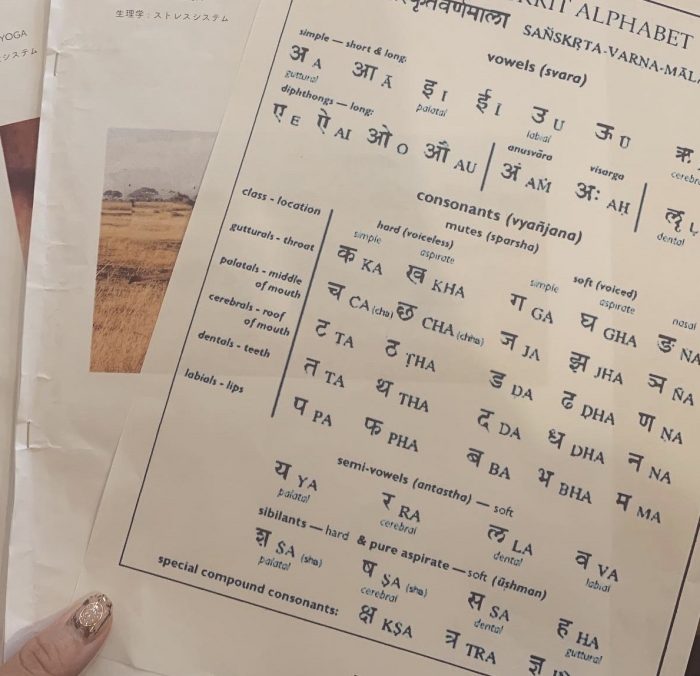 YOGA
生理学:ストレスシステム
ALPHABET
SAÑSKṚTA-VARNA-MĀL
vowels (svara)
simple — short & long:
अ A आ Ā इ I ई Ī उ U ऊ Ū ऋ
guttural palatal labial
diphthongs — long:
ए E ऐ AI ओ O औ AU
anusvāra visarga
अं AṀ अः AḤ
dental
consonants (vyañjana)
mutes (sparsha)
class - location hard (voiceless) soft (voiced)
simple aspirate simple aspirate nasal
gutturals - throat क KA ख KHA ग GA घ GHA ङ
palatals - middle of mouth च CA (cha) छ CHA (chha) ज JA झ JHA ञ ÑA
cerebrals - roof of mouth ट TA ठ ṬHA ड DA ढ DHA ण NA
dentals - teeth त TA थ THA द DA ध DHA न NA
labials - lips प PA फ PHA ब BA भ BHA म MA
semi-vowels (antastha) — soft
य YA र RA ल LA व VA
palatal cerebral dental labial
sibilants — hard & pure aspirate — soft (ūshman)
श SA (sha) ष ṢA (sha) स SA ह HA
palatal cerebral dental guttural
special compound consonants: क्ष KṢA त्र TRA